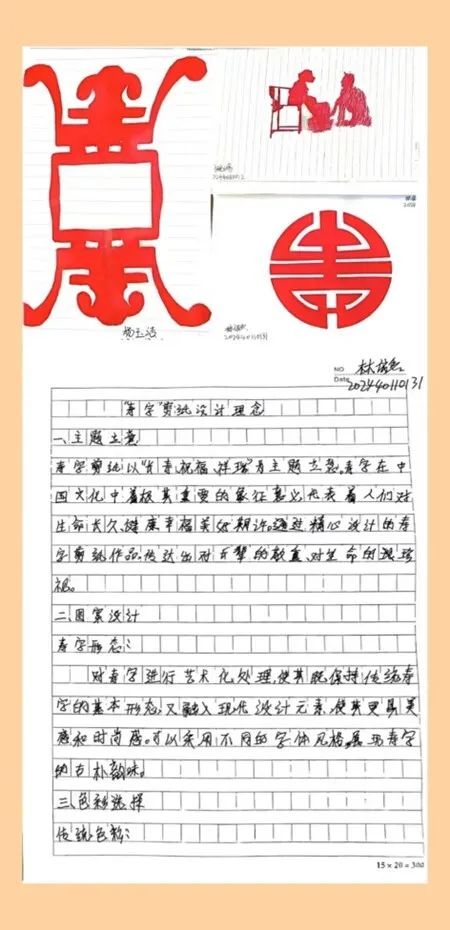 2024
202440110131
NO
Date 202440110131
"寿字"剪纸设计理念
一、主题立意
寿字剪纸以"长寿,祝福,祥瑞"为主题立意。寿字在中
国文化中着极其重要的象征意义,代表着人们对
生命长久、健康幸福美好期许。通过精心设计的寿
字剪纸作品,传达出对长辈的敬重,对生命的珍
视。
二、图案设计
寿字形态:
对寿字进行艺术化处理,使其既保持传统寿
字的基本形态,又融入现代设计元素,使其更具美
感和时尚感。可以采用不同的字体风格,展现寿字
的古朴韵味。
三、色彩选择
传统色彩:
15×20=300